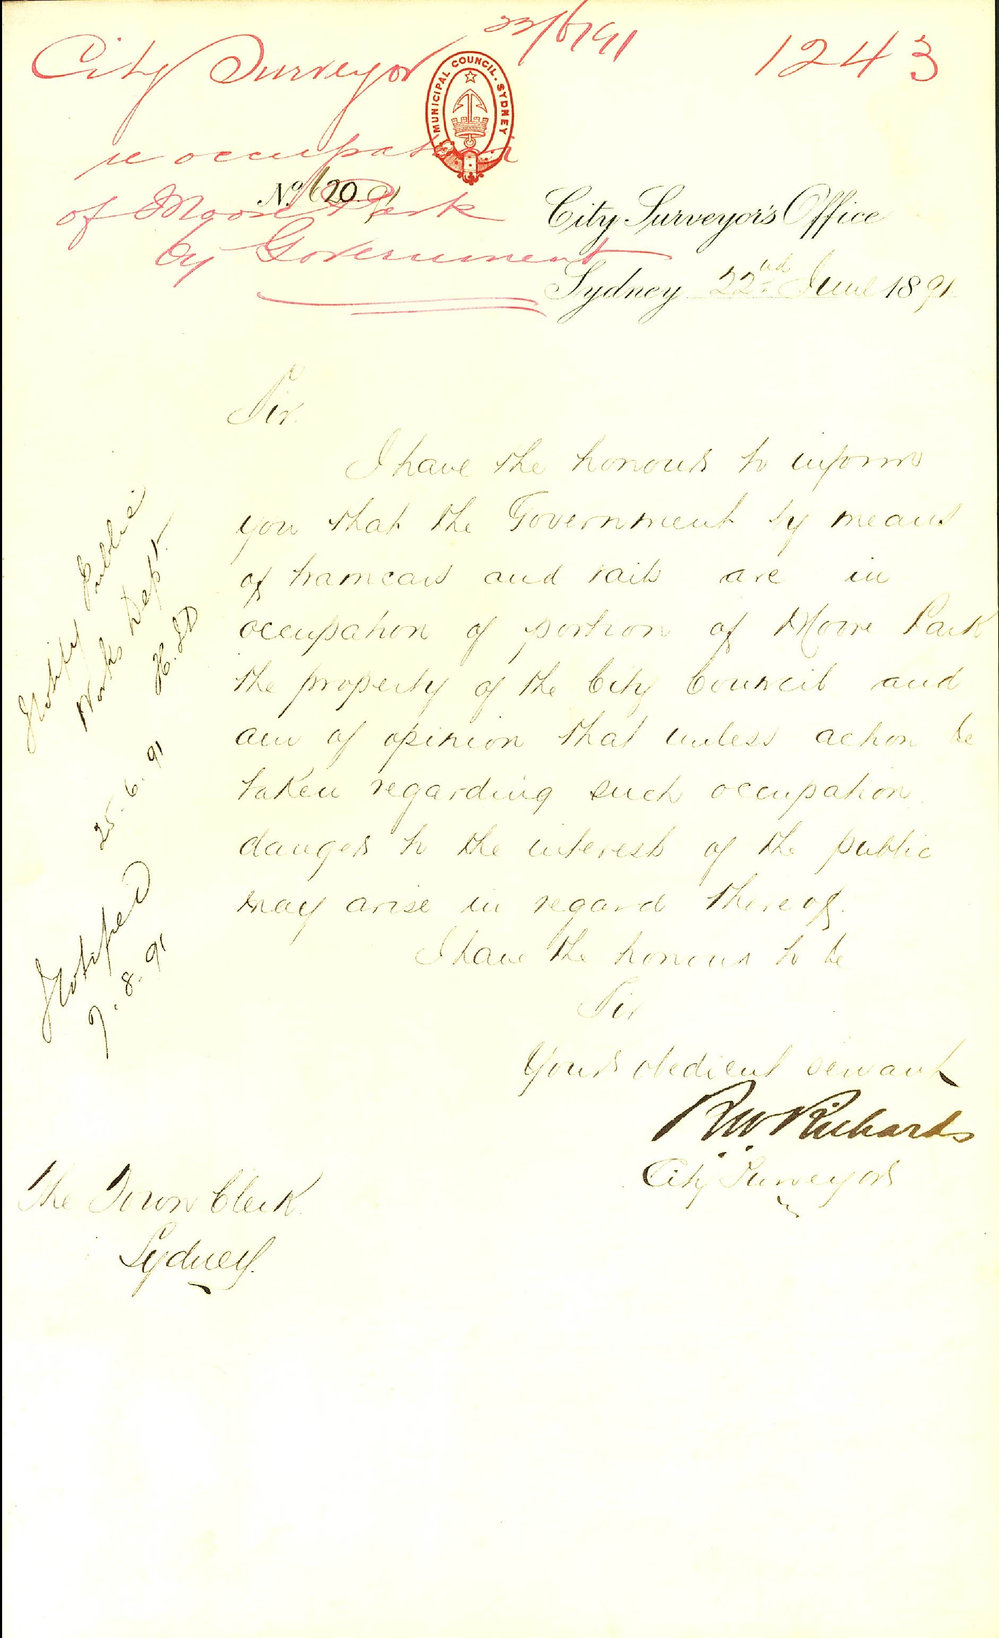 23/6/91
City Surveyor
1243
MUNICIPAL COUNCIL. SYDNEY
re occupation
of Moore Park
by Government
No. 20 91
City Surveyor's Office
Sydney 22nd June 1891
Sir.
I have the honour to inform
you that the Government by means
of tramcars and rails are in
occupation of portion of Moore Park
the property of the City Council and
am of opinion that unless action be
taken regarding such occupation
danger to the interests of the public
may arise in regard thereof.
I have the honour to be
Sir
Your obedient servant
RW Richards
City Surveyor
The Town Clerk.
Sydney.
Notify Public
Works Dept.
25.6.91
Notified
7.8.91